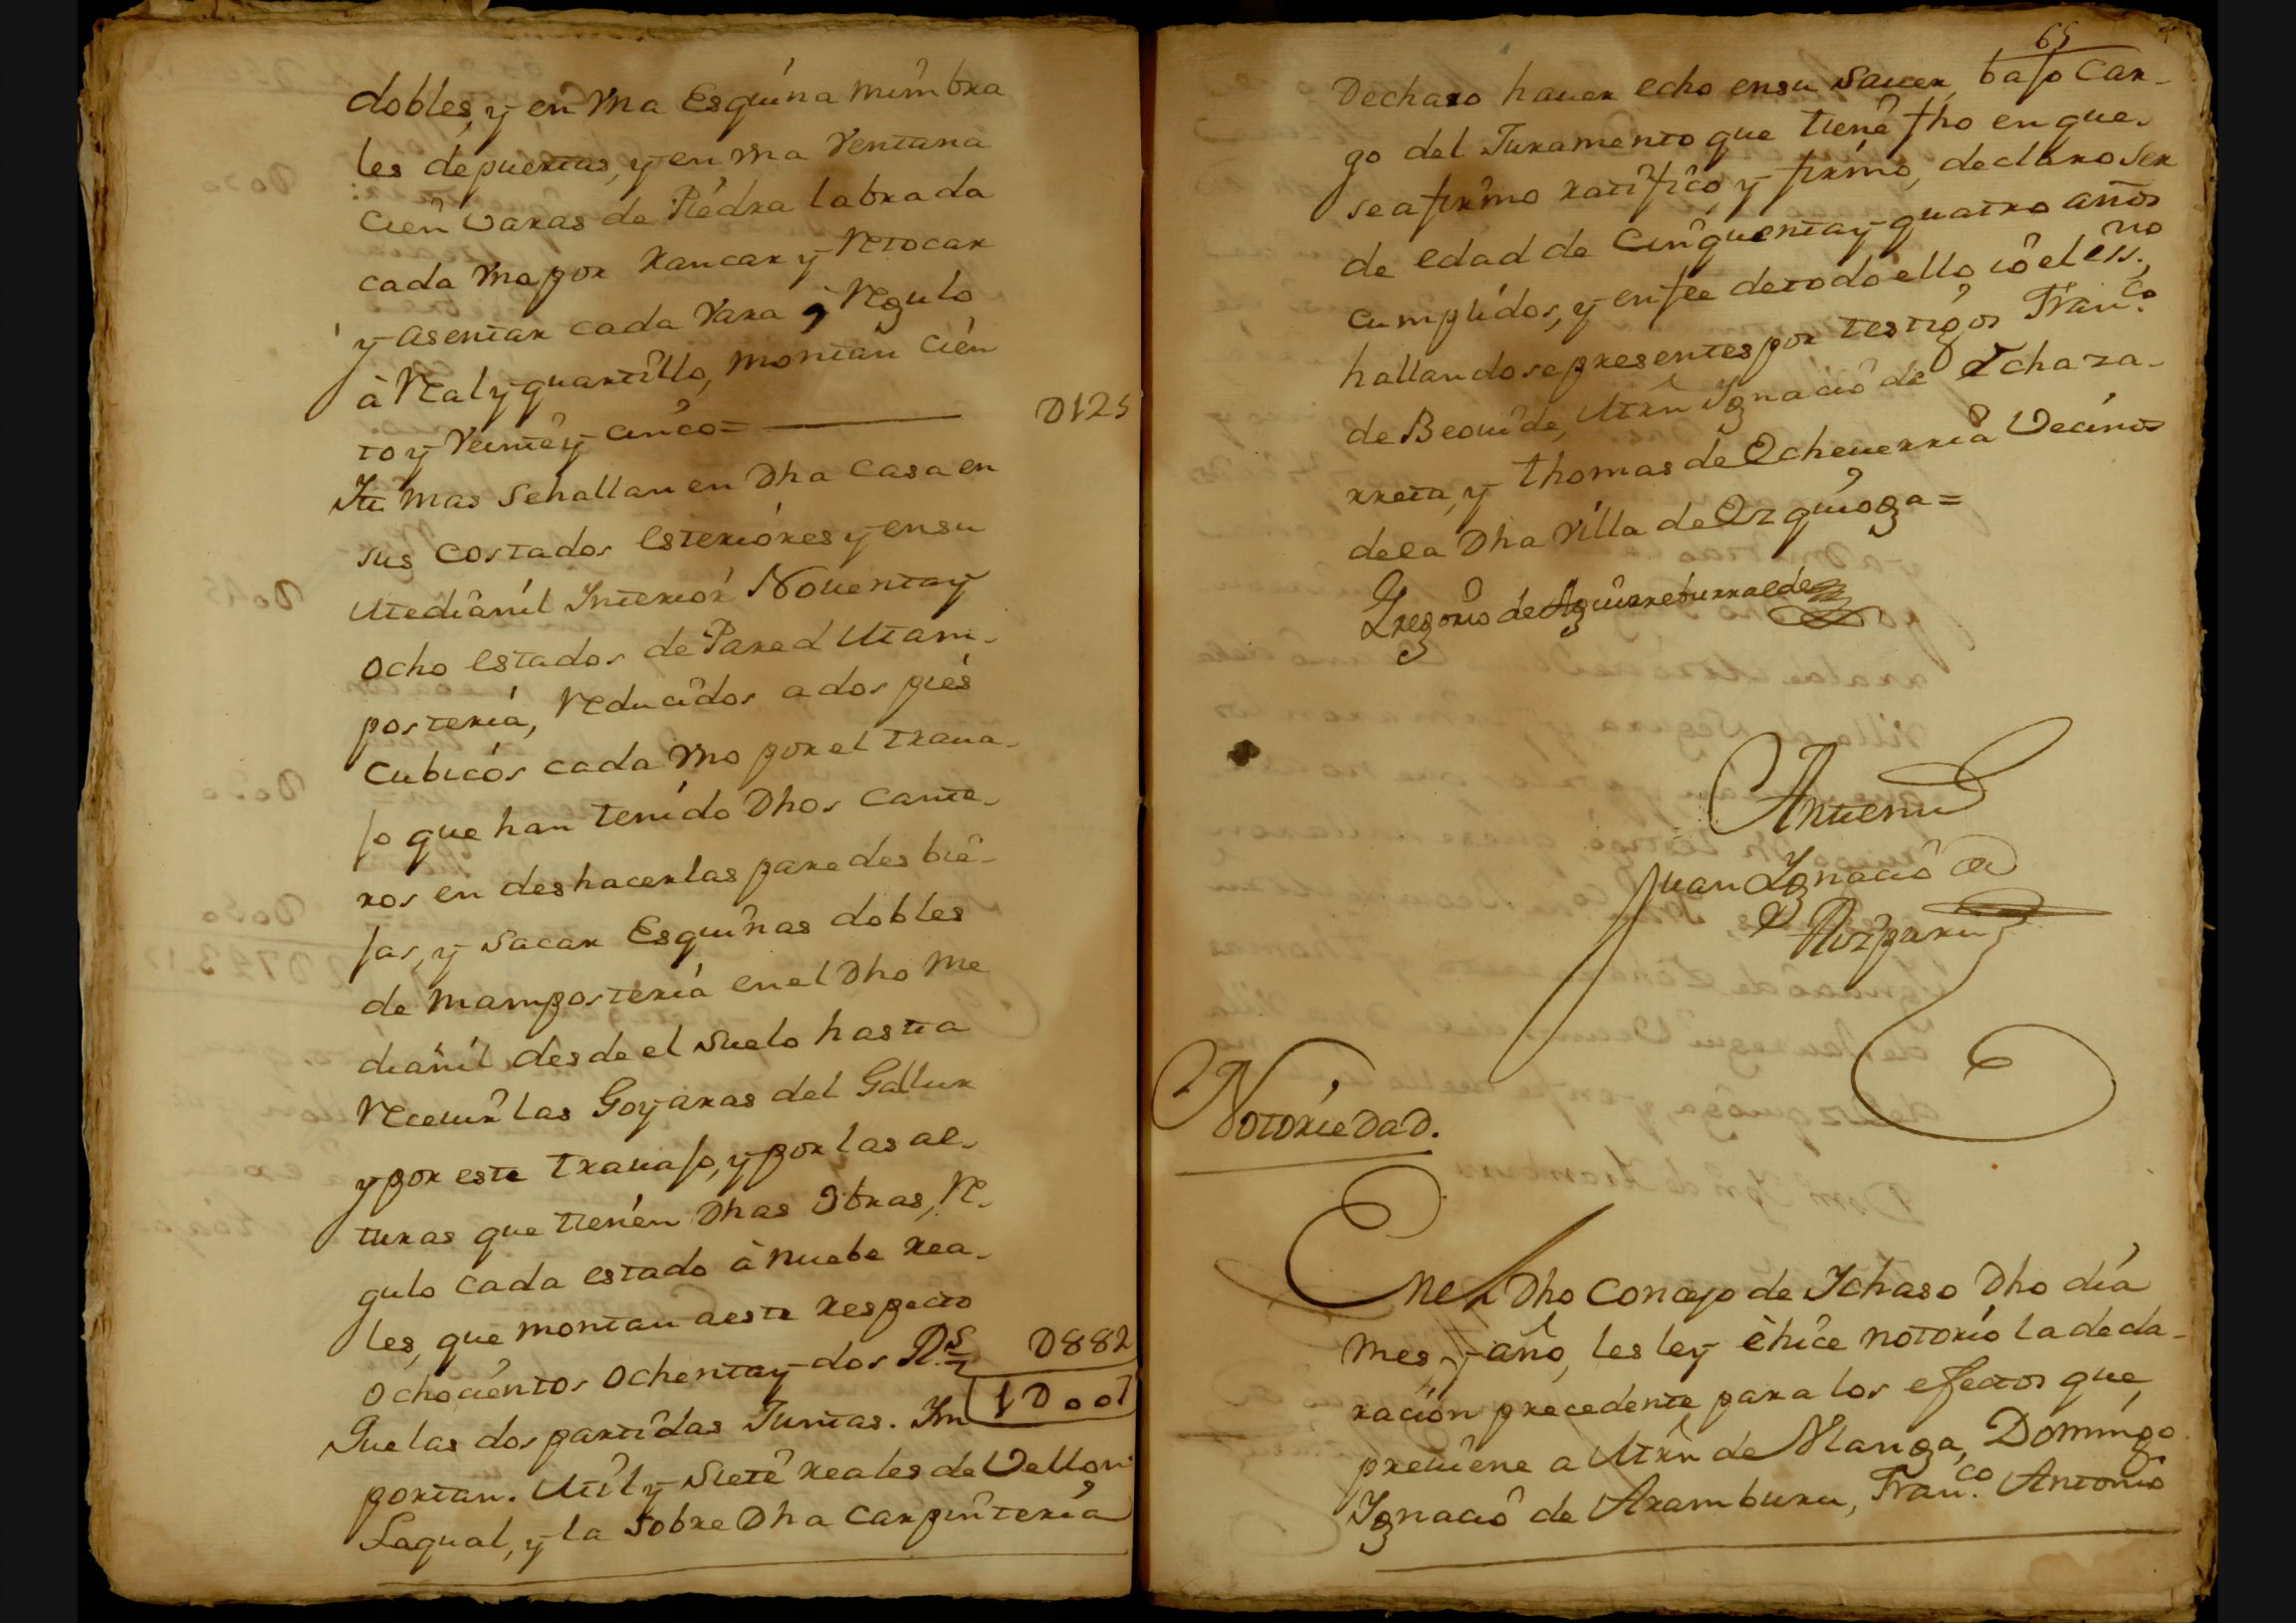 dobles, y en Vna Esquina mimbra
les de puertas, y en vna Ventana
Cien Varas de Piedra labrada
cada Vna por Rancar y Retocar
y asentar cada Vara Regulo
à Real y quartillo, montan Cien
to y Veinte y cinco = D125
Itt. mas se hallan en Dha Casa en
sus costados esteriores y en su
Medianil Interior Nouenta y
ocho estados de Pared Mam-
posteria, reducidos a dos pies
Cubicos cada Vno por el traua-
jo que han tenido Dhos Cante-
ros en deshacer las paredes bie-
jas, y sacar Esquinas dobles
de mamposteria en el Dho Me
dianil desde el suelo hasta
Receuir las Goyaras del Gallur
y por este trauajo, y por las al-
turas que tienen Dhas Obras, Re-
gulo cada estado à nuebe Rea-
les, que montan a este respecto
ochocientos ochenta y dos Rs. D882
Que las dos partidas Juntas. Im 1D007
portan. Mil y Siete reales de Vellon
Laqual, y la sobre Dha Carpinteria
65
Declaro hauer echo en su Sauer, bajo Car-
go del Juramento que tiene fho en que
se afirmo ratifico, y firmo, declaro Ser
de edad de Cinquenta y quatro años
cumplidos, y en fee de todo ello io el ess.no
hallandose presentes por testigos Fran.co
de Beouide, Mrn Ygnacio de Echaza-
rreta, y Thomas de Echeuerria Vecinos
de la Dha Villa de Ezquioga =
Gregorio de Aguirreburralde
Antemi
Juan Ygnacio de
Aizpuru
Notoriedad.
En el Dho Concejo de Ichaso Dho dia
mes, y año, les ley è hice notorio la decla-
racion precedente para los efectos que
preuiene a Mrn de Alanga, Domingo
Ignacio de Aramburu, Fran.co Antonio